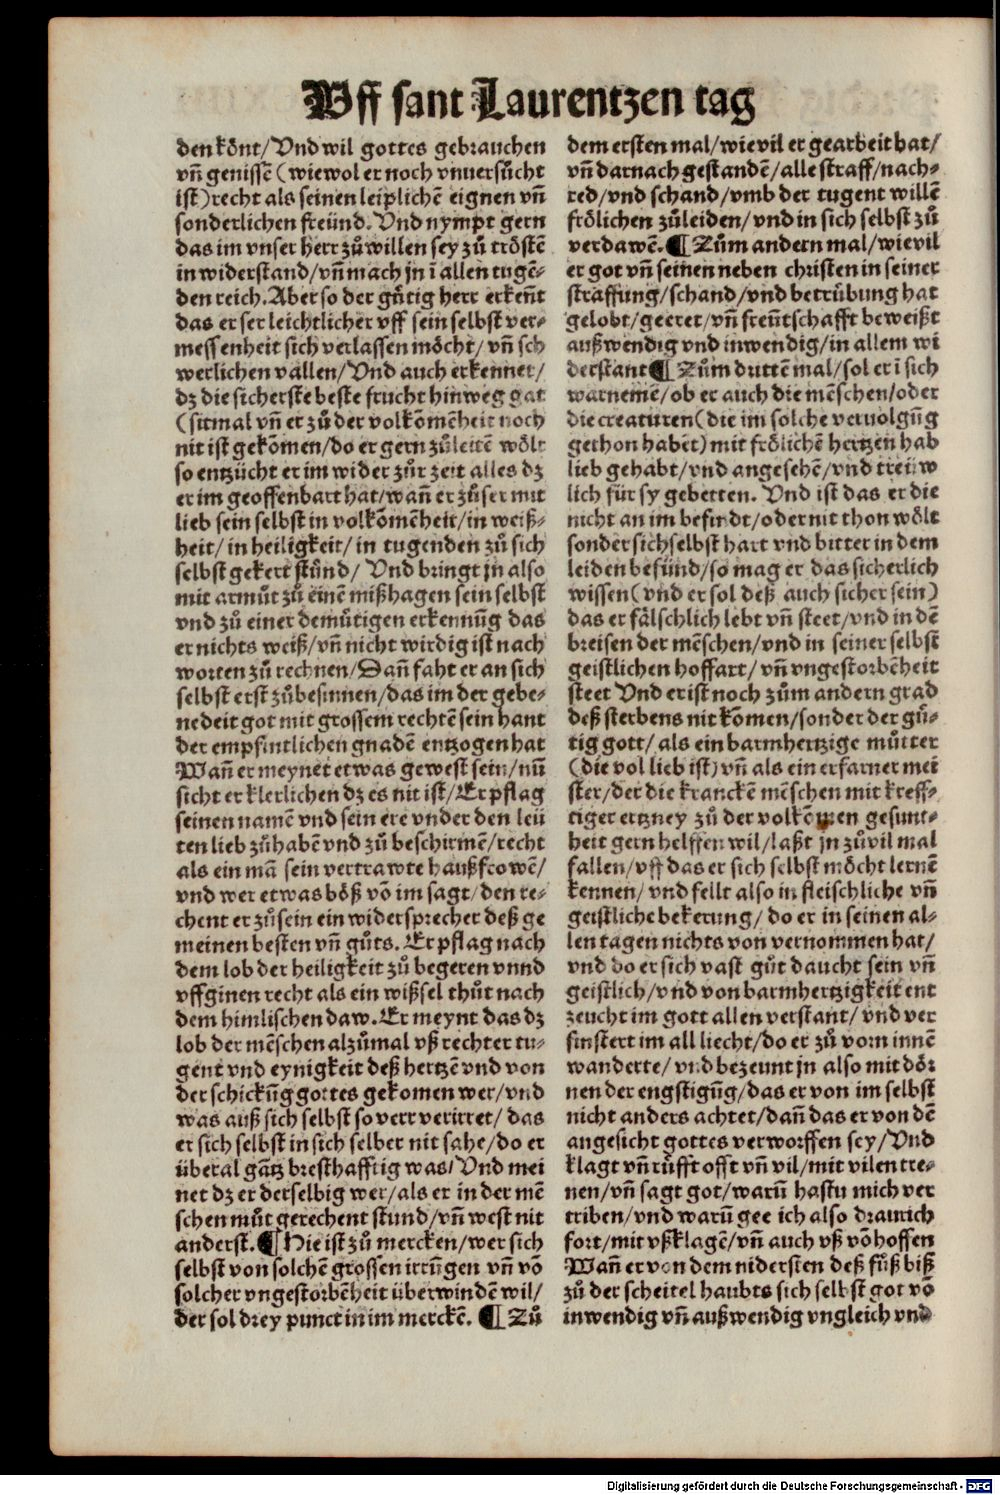 Vff sant Laurentzen tag
den könt/ Vnd wil gottes gebrauchen
vñ genissē (wiewol er noch vnuersůcht
ist) recht als seinen leiplichē eignen vñ
sonderlichen freünd. Vnd nympt gern
das im vnser herr zů willen sey zů tröstē
in widerstand/vñ mach jn ī allen tugē-
den reich. Aber so der gůtig herr erkeñt
das er ser leichtlicher vff sein selbst ver-
messenheit sich verlassen möcht/ vñ sch
werlichen vallen/ Vnd auch erkennet/
dz die sicherste beste frucht hinweg gat
(sitmal vñ er zů der volkōmēheit noch
nit ist gekōmen/do er gern zůleitē wölt
so entzücht er im wider zůr zeit alles dz
er im geoffenbart hat/wañ er zůser mit
lieb sein selbst in volkōmēheit/in weiß-
heit/ in heiligkeit/ in tugenden zů sich
selbst gekert stůnd/ Vnd bringt jn also
mit armůt zů einē mißhagen sein selbst
vnd zů einer demůtigen erkennūg das
er nichts weiß/vñ nicht wirdig ist nach
worten zů rechnen/Dañ faht er an sich
selbst erst zůbesinnen/das im der gebe-
nedeit got mit grossem rechtē sein hant
der empfintlichen gnadē entzogen hat
Wañ er meynet etwas gewest sein/nū
sicht er klerlichen dz es nit ist/Er pflag
seinen namē vnd sein ere vnder den leü
ten lieb zůhabē vnd zů beschirmē/recht
als ein mā sein vertrawte haußfrowē/
vnd wer etwas böß vō im sagt/den re-
chent er zůsein ein widersprecher deß ge
meinen besten vñ gůts. Er pflag nach
dem lob der heiligkeit zů begeren vnnd
vffginen recht als ein wißsel thůt nach
dem himlischen daw. Er meynt das dz
lob der mēschen alzůmal vß rechter tu-
gent vnd eynigkeit deß hertzē vnd von
der schickūg gottes gekomen wer/vnd
was auß sich selbst so verr verirret/ das
er sich selbst in sich selber nit sahe/do er
überal gātz bresthafftig was/ Vnd mei
net dz er derselbig wer/als er in der mē
schen můt gerechent stund/vñ west nit
anderst. ¶ Hie ist zů mercken/wer sich
selbst von solchē grossen irrūgen vñ vō
solcher vngestorbēheit überwindē wil/
der sol drey punct in im merckē. ¶ Zů
dem ersten mal/wievil er gearbeit hat/
vñ darnach gestandē/alle straff/nach-
red/vnd schand/vmb der tugent willē
frölichen zůleiden/vnd in sich selbst zů
verdawē. ¶ Zům andern mal/wievil
er got vñ seinen neben christen in seiner
straffung/schand/vnd betrübung hat
gelobt/geeret/vñ freūtschafft beweißt
außwendig vnd inwendig/in allem wi
derstant ¶ Zům drittē mal/sol er ī sich
warnemē/ob er auch die mēschen/oder
die creaturen(die im solche veruolgūg
gethon habēt) mit frölichē hertzen hab
lieb gehabt/vnd angesehē/vnd treüw
lich für sy gebetten. Vnd ist das er die
nicht an im befindt/oder nit thon wölt
sonder sichselbst hart vnd bitter in dem
leiden befünd/so mag er das sicherlich
wissen(vnd er sol deß auch sicher sein)
das er fälschlich lebt vñ steet/vnd in dē
breisen der mēschen/vnd in seiner selbst
geistlichen hoffart/ vñ vngestorbēheit
steet Vnd er ist noch zům andern grad
deß sterbens nit kōmen/sonder der gü-
tig gott/ als ein barmhertzige můtter
(die vol lieb ist) vñ als ein erfarner mei
ster/der die kranckē mēschen mit kreff-
tiger ertzney zů der volkōmen gesunt-
heit gern helffen wil/laßt jn zůvil mal
fallen/ vff das er sich selbst möcht lernē
kennen/ vnd fellt also in fleischliche vñ
geistliche bekerung/ do er in seinen al-
len tagen nichts von vernommen hat/
vnd do er sich vast gůt daucht sein vñ
geistlich/vnd von barmhertzigkeit ent
zeucht im gott allen verstant/ vnd ver
finstert im all liecht/do er zů vorn innē
wanderte/ vnd bezeunt jn also mit dör
nen der engstigūg/das er von im selbst
nicht anders achtet/dañ das er von dē
angesicht gottes verworffen sey/Vnd
klagt vñ růfft offt vñ vil/mit vilen tre-
nen/vñ sagt got/warū hastu mich ver
triben/vnd warū gee ich also draurich
fort/mit vßklagē/vñ auch vß vō hoffen
Wañ er von dem nidersten deß fůß biß
zů der scheitel haubts sich selbst got vō
inwendig vñ außwendig vngleich vnd
Digitalisierung gefördert durch die Deutsche Forschungsgemeinschaft - DFG